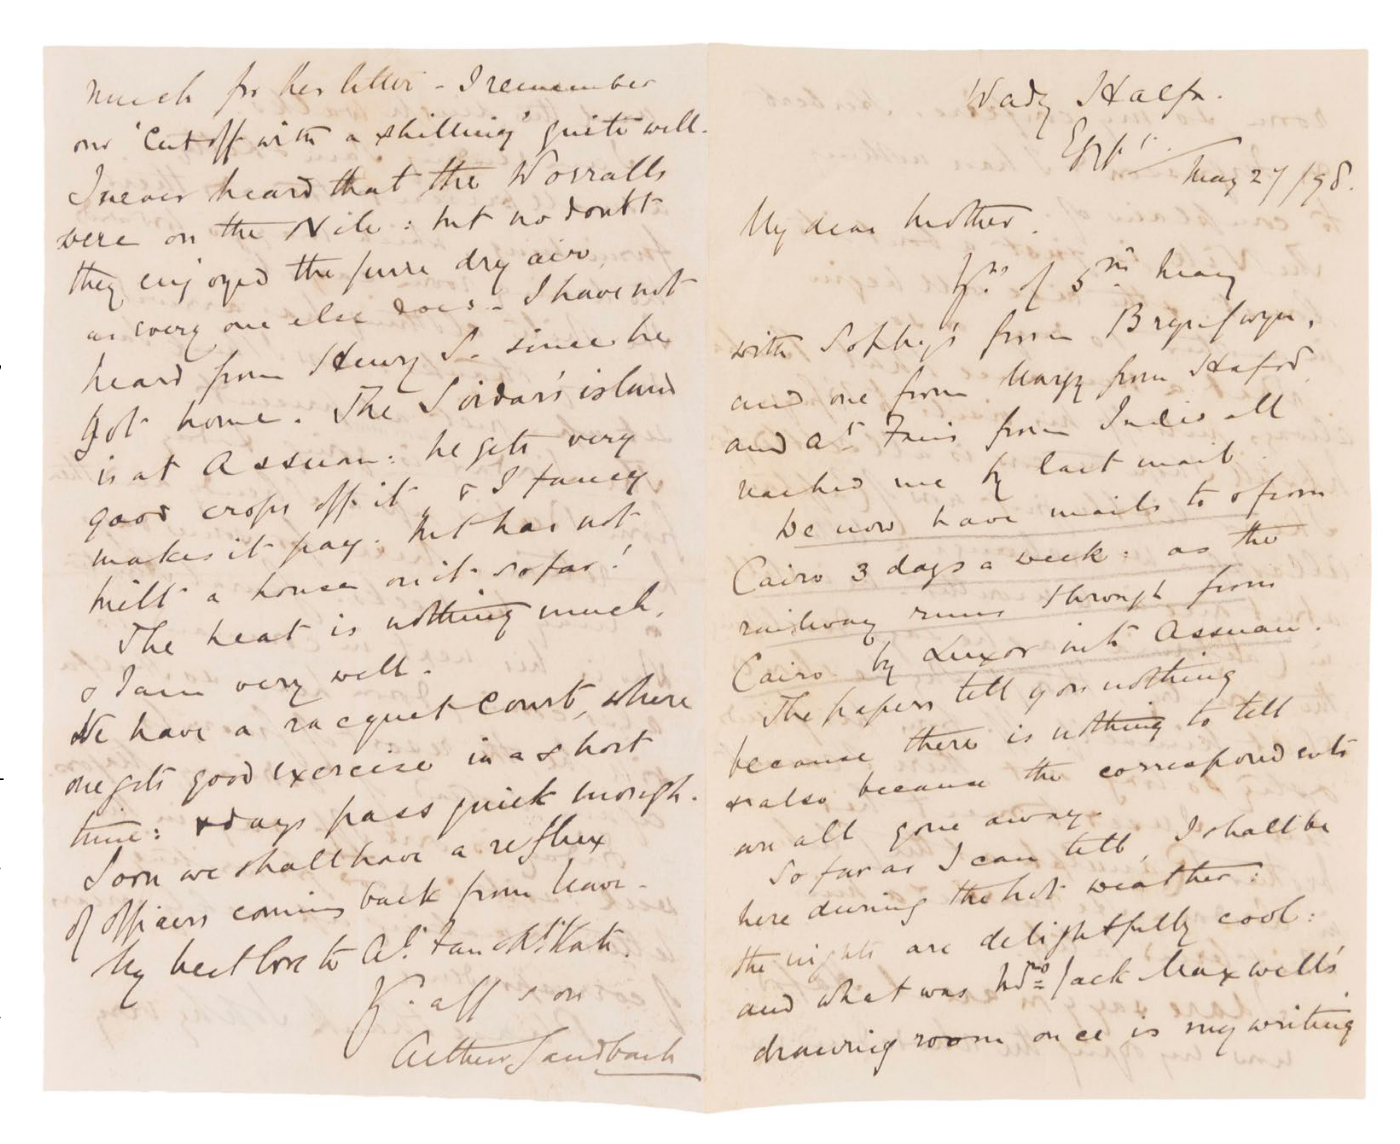 Wady Halfa.
Egypt.
May 27/98.
My dear Mother.
Yrs of 5th May
with Sophy's from Bryn/wyn,
and one from May from Hafod
and At Fan's from India all
reached me by last mail.
We now have mails to & from
Cairo 3 days a week: as the
railway runs through from
Cairo by Luxor into Assuan.
The papers tell you nothing
because there is nothing to tell
& also because the correspondents
are all gone away.
So far as I can tell, I shall be
here during the hot weather:
the nights are delightfully cool:
and what was Mrs Jack Maxwell's
drawing room once is my writing
much for her letter - I remember
our 'Cut off with a shilling' quite well.
I never heard that the Worralls
were on the Nile: but no doubt
they enjoyed the pure dry air,
as every one else does - I have not
heard from Henry S. since he
got home. The Sirdar's island
is at Assuan: he gets very
good crops off it, & I fancy
makes it pay. But has not
built a house on it so far!
The heat is nothing much,
& I am very well.
We have a racquet court, where
one gets good exercise in a short
time: & days pass quick enough.
Soon we shall have a reflux
of officers coming back from leave -
My best love to At. Fan & At Kate.
Yr. aff son
Arthur Sandbach